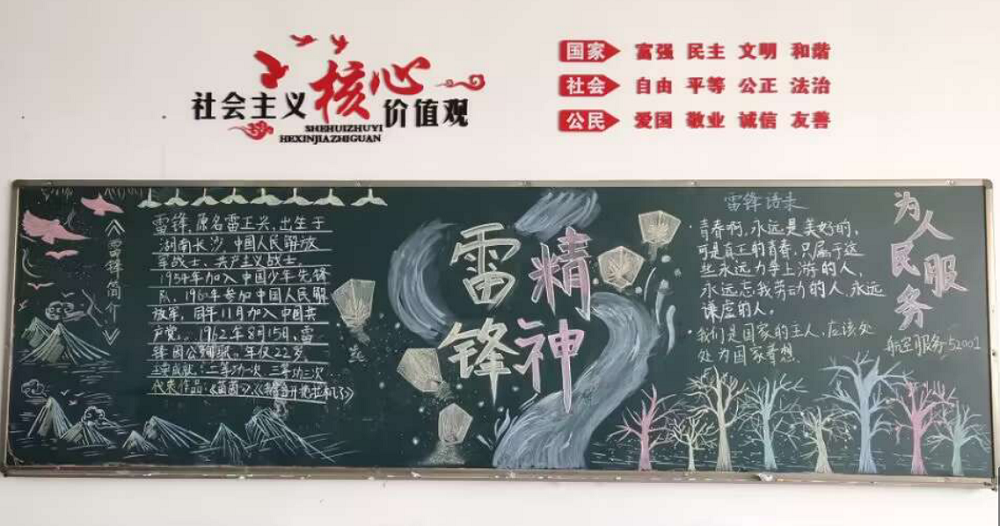 社会主义核心价值观
SHEHUIZHUYI
HEXINJIAZHIGUAN
国家 富强 民主 文明 和谐
社会 自由 平等 公正 法治
公民 爱国 敬业 诚信 友善
《雷锋简介》
雷锋,原名雷正兴,出生于
湖南长沙,中国人民解放
军战士、共产主义战士。
1954年加入中国少年先锋
队,1960年参加中国人民解
放军,同年11月加入中国共
产党。1962年8月15日,雷
锋因公殉职,年仅22岁。
二等功一次 三等功三次
代表作品:
雷锋
精神
雷锋语录
青春啊,永远是美好的,
可是真正的青春,只属于这
些永远力争上游的人,
永远忘我劳动的人,永远
谦虚的人。
我们是国家的主人,应该处
处为国家着想。
为人民服务
航空服务-52001